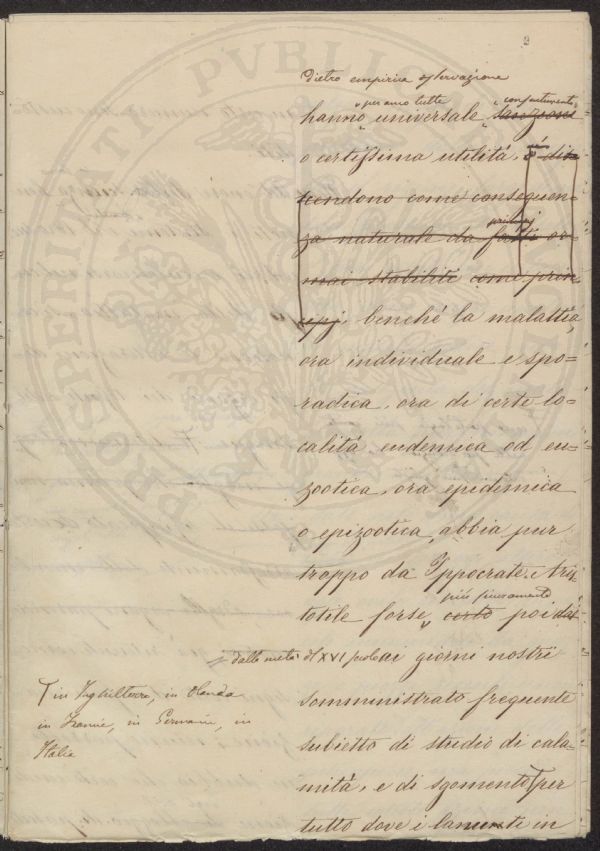 2
dietro empirica osservazione
per anco tutte confortimento
hanno universale
o certissima utilità, è di
scendono come conseguen=
principj
za naturale da fatti or=
mai stabiliti come prin=
cipj, benché la malattia,
ora individuale e spo=
radica, ora di certe lo=
calità endemica od en=
zootica, ora epidemica
o epizootica, abbia pur
troppo da Ippocrate, Aris
più sicuramente
totile forse certo poi dal
dalla metà del XVI secolo ai giorni nostri
somministrato frequente
subietto di studio di cala=
mità, e di sgomento per
tutto dove i lanuti in
in Inghilterra, in Olanda
in Francia, in Germania, in
Italia
PROSPERITATI PVBLICAE